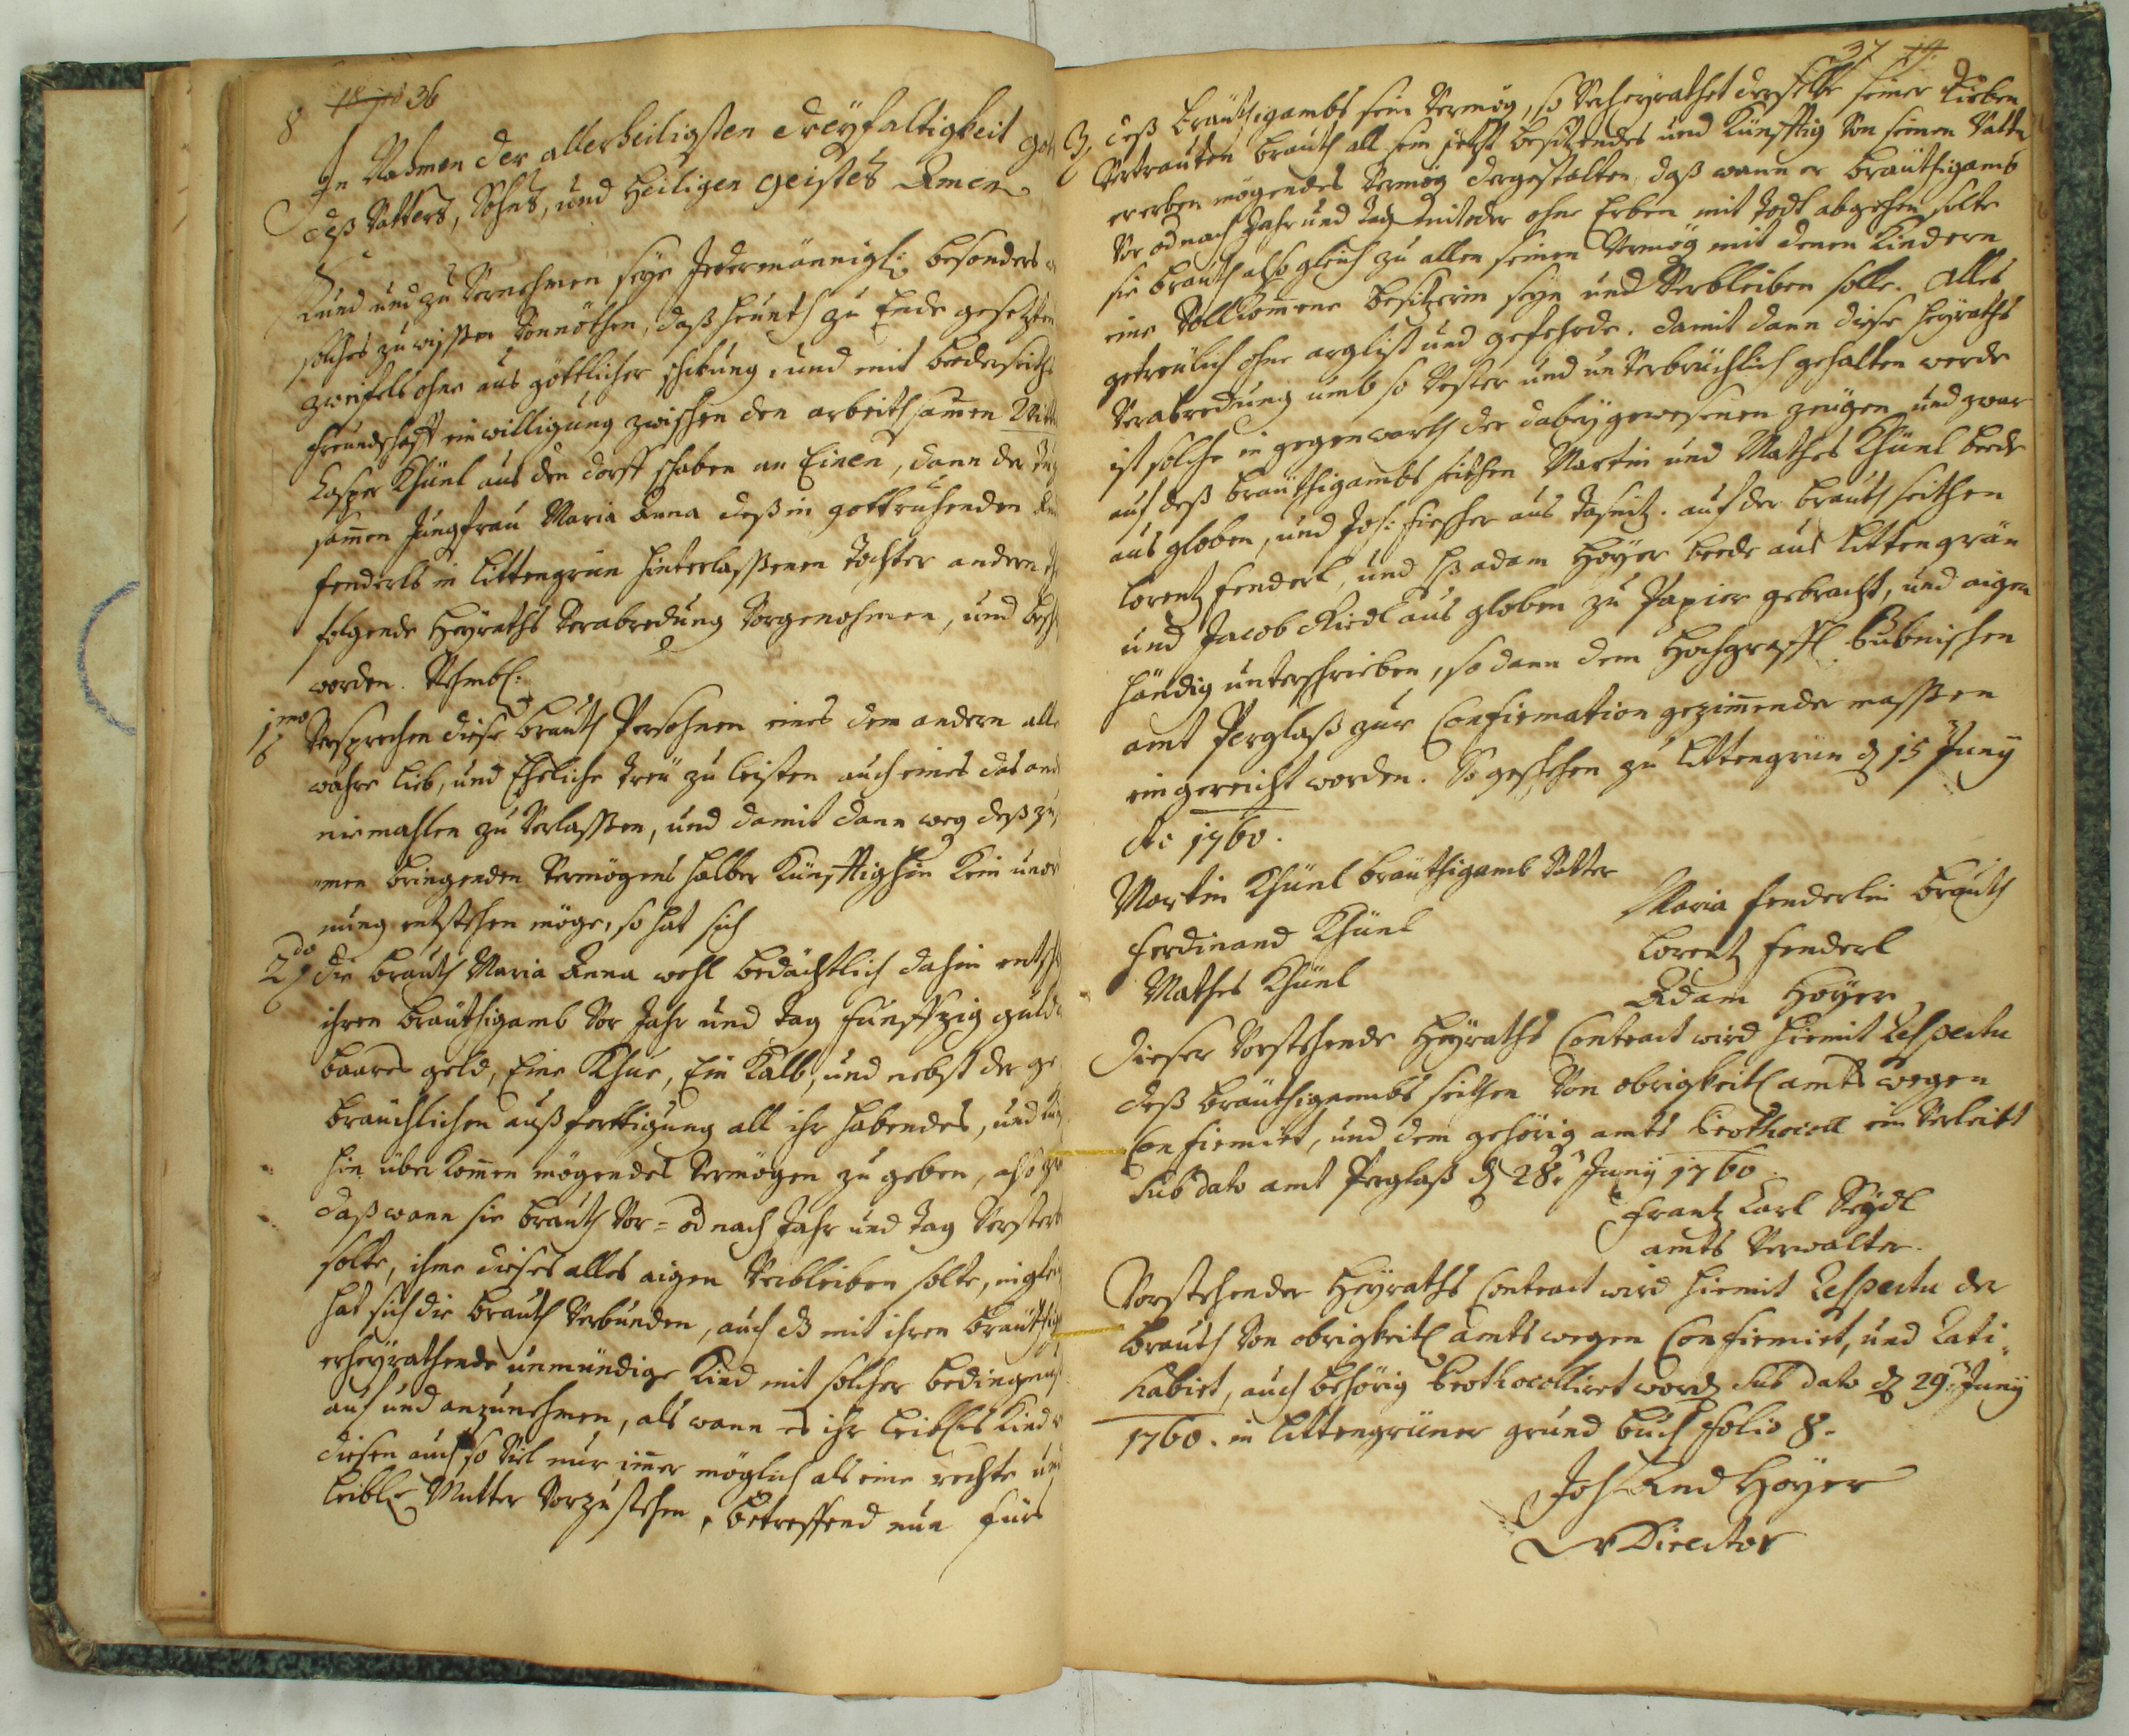 8 36
In Nahmen der allerheiligsten Dreyfaltigkeit Got
deß Vatters, Sohns, und Heiligen Geistes Amen
Kund und zu Vernehmen seye Jedermännigl: besonders
solches zu wissen Vonnöthen, daß heunth zu Ende gesetzten
zweifels ohne aus göttlicher schikung, und mit beederseiths
freundschafft einwilligung zwischen den arbeithsamen Witt
Casper Khünl aus den dorff schaben an Einen, dann der Tug
samen Jungfrau Maria Anna deß in gott ruhenden
fenderls in Littengrün hinterlassenen Tochter andern
folgende Heyraths Verabredung Vorgenohmen, und
worden. Nehmbl:
1mo Versprechen diese brauth Persohnen eines dem andern alle
wahre Lieb, und Eheliche treü zu leisten auch eines das and
niemahlen zu Verlassen, und damit dann weg deß zus
men bringenden Vermögens halber Künfftighin Kein unord
nung entstehen möge, so hat sich
2do die brauth Maria Anna wohl bedächtlich dahin
ihren bräuthigamb Vor Jahr und Tag fünffzig guld
baares geld, Eine Khue, Ein Kalb, und nebst der ge
bräuchlichen außferttigung all ihr habendes, und
hin überkomen mögendes Vermögen zu geben, also
daß wann sie brauth Vor= od nach Jahr und Tag Versterb
solte, ihme dieses alles aigen Verbleiben solte,
hat sich die brauth Verbunden, auch dß mit ihren bräuthig
erheyrathende unmündige Kind mit solcher bedingung
auf und anzunehmen, als wann es ihr leibhes Kind
diesen auch so Viel nur imer möglich als eine rechte und
leibl: Mutter Vorzustehen, betreffend nun fürs
37
3, deß bräuthigambs sein Vermög, so Verheyrathet derselbe seiner Lieben
Vertrauten brauth all sein jetzt besitzendes und Künfftig Von seinen Vatter
ererben mögendes Vermög dergestalten, daß wann er bräuthigamb
Vor od nach Jahr und Tag mit oder ohne Erben mit Todt abgehen solte
sie brauth also gleich zu allen seinen Vermög mit denen Kindern
eine Vollkomene besitzerin seyn und Verbleiben solle. Alles
getreülich ohne arglist und gefehrde. Damit dann diese heyraths
Verabredung umb so Vester und unVerbrüchlich gehalten werde
ist solche in gegenwarth der dabeygewesenen zeügen und zwar
auf deß bräuthigambs seithen Martin und Mathes Khünl beede
aus globen, und Jos: fischer aus Tasnitz. auf der brauth seithen
Lorentz fenderl, und Hß adam Hoyer beede aus Littengrün
und Jacob Riedl aus globen zu Papier gebracht, und aigen
händig unterschrieben, so dann dem Hochgräffl: bubnischen
amt Perglaß zur Confirmation gezimender massen
eingereicht worden. So geschehen zu Littengrün d 15 Juny
Ao: 1760.
Martin Khünl bräuthigamb Vatter
ferdinand Khünl
Mathes Khünl
Maria fenderlin brauth
Lorentz fenderl
Adam Hoyer
Dieser Vorstehende Heyraths Contract wird hiemit Respectu
deß bräuthigambs seithen Von obrigkeitl amts wegen
Confirmiret, und dem gehörig amts Prothocoll ein Verleibt
Sub dato amt Perglaß d 28. Juny 1760
Frantz Carl Seydl
amts Verwalter.
Vorstehender Heyraths Contract wird hiemit Respectu der
brauth Von obrigkeitl amts wegen Confirmiret, und Rati-
habiret, auch behörig Prothocolliret word Sub dato d 29. Juny
1760. in Littengrüner grund buch folio 8.
Joh And Hoyer
Director